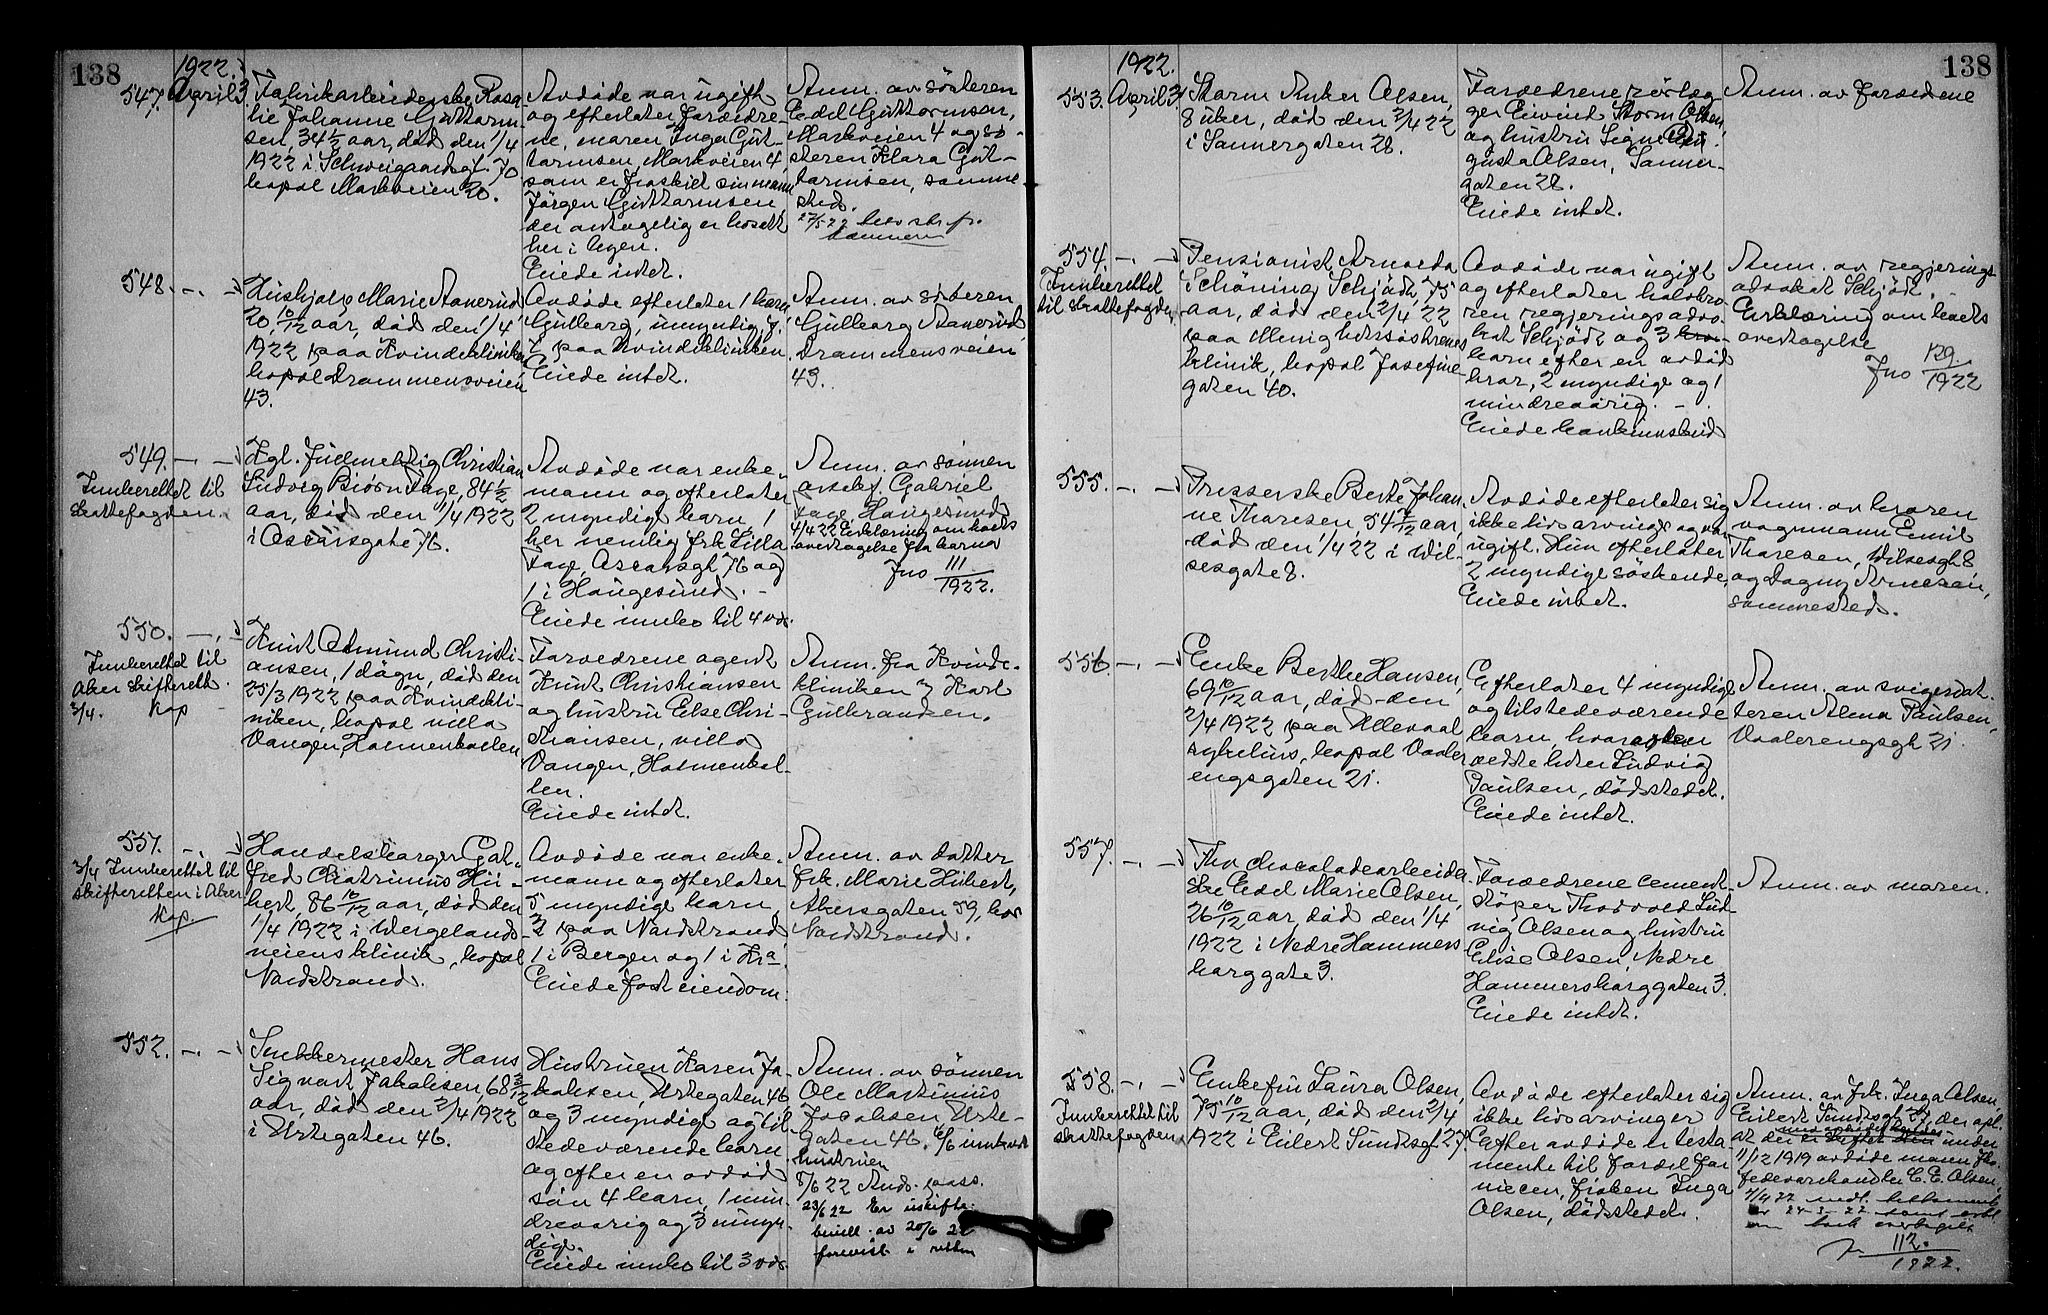 138
1922.
547. April 3. Fabrikarbeiderske Rosa-
lie Johanne Guttorm-
sen, 34 1/2 aar, død den 1/4
1922 i Schweigaardsgt. 70
bopæl Markveien 20.
Avdøde var ugift
og efterlater forældre-
ne, moren Inga Gut-
tormsen, Markveien 4,
som er fraskilt sin mann
Jørgen Guttormsen
der antagelig er bosatt
her i byen.
Eiede intet.
Anm. av søsteren
Edel Guttormsen,
Markveien 4 og sø-
steren Klara Gut-
tormsen, samme
sted.
548. -,- Hushjælp Marie Aanerud
20 10/12 aar, død den 1/4
1922 paa Kvindeklinikken
bopæl Drammensveien
43.
Avdøde efterlater 1 barn
Gulborg, umyndig, f.
paa Kvindeklinikken
Eiede intet.
Anm. av søsteren
Gulborg Aanerud,
Drammensveien
43.
549. -,- Kgl. fuldmektig Christian
Ludvig Biørn Faye, 84 1/2
aar, død den 1/4 1922
i Oscarsgate 76.
Innberettet til
skattefogden.
Avdøde var enke-
mann og efterlater
2 myndige barn, 1
her nemlig frk Lilla
Faye, Oscarsgt 76 og
1 i Haugesund. -
Eiede innbo til 4 vær.
Anm. av sønnen
arkitekt Gabriel
Faye Haugesund
4/4 22 Erklæring om boets
overtagelse fra barna
Jno 111/1922.
550. -,- Knut Edmund Christi-
ansen, 1 døgn, død den
25/3 1922 paa Kvindekli-
niken, bopæl villa
Vangen, Holmenkollen
Innberettet til
Aker skifterett.
3/4. Kop
Forældrene agent
Knut Christiansen
og hustru Else Chri-
stiansen, villa
Vangen, Holmenkol-
len.
Eiede intet.
Anm. fra Kvinde-
kliniken v/ Karl
Gulbrandsen.
551. -,- Handelsborger Got-
fred Hu-
bert, 86 10/12 aar, død den
1/4 1922 i Wergelands-
veiens klinik, bopæl
Nordstrand.
3/4 Innberettet til
skifteretten i Aker
Kop.
Avdøde var enke-
mann og efterlater
5 myndige barn,
3 paa Nordstrand,
1 i Bergen og 1 i Kr.a
Eiede fast eiendom.
Anm. av datter
frk. Marie Hubert,
Akersgaten 59, bor
Nordstrand.
552. -,- Snekkermester Hans
Sigvart Jakobsen, 68 3/12
aar, død den 2/4 1922
i Urtegaten 46.
Hustruen Karen Ja-
kobsen, Urtegaten 46
og 3 myndige og til-
stedeværende barn
og efter en avdød
søn 4 barn, 1 min-
dreaarig og 3 myn-
dige.
Eiede innbo til 3 vær.
Anm. av sønnen
Ole Martinius
Jacobsen Urte-
gaten 46. 6/6 innkaldt
hustruen
8/6 22 Ands. pass.
23/6 22 Er uskifte-
bevill. av 20/6 22
forevist i retten
138
1922.
553. April 3. Storm Anker Olsen,
8 uker, død den 2/4 22
i Sannergaten 28.
Forældrene rørlæg-
ger Eivind Storm Olsen
og hustru Signe Au-
gusta Olsen, Sanner-
gaten 28.
Eiede intet.
Anm. av forældrene
554. -,- Pensionist Arnolda
Schøning Schjødt, 75
aar, død den 2/4 22
paa Menighetssøstrenes
klinik, bopæl Josefine-
gaten 40.
Innberettet
til skattefogden
Avdøde var ugift
og efterlater halvbro-
ren regjeringsadvo-
kat Schjødt og 3
barn efter en avdød
bror, 2 myndige og 1
mindreaarig. -
Eiede bankinnskud
Anm. av regjerings-
advokat Schjødt.
Erklæring om boets
overtagelse
Jno 129./1922
555. -,- Presserske Berte Johan-
ne Thoresen, 54 aar,
død den 1/4 22 i Wil-
sesgate 8.
Avdøde efterlater sig
ikke livsarvinger og var
ugift. Hun efterlater
2 myndige søskende,
Eiede intet.
Anm. av broren
vognmann Emil
Thoresen, Wilsesgt 8
og Dagny Arnesen,
sammested.
556. -,- Enke Berthe Hansen,
69 10/12 aar, død den
2/4 1922 paa Ullevaal
sykehus, bopæl Vaaler-
engsgaten 21.
Efterlater 4 myndige
og tilstedeværende
barn, hvorav den
ældste heter Ludvig
Paulsen, dødsstedet.
Eiede intet.
Anm. av svigerdat-
teren Alma Paulsen,
Vaalerengsgt 21
557. -,- Fhv chocoladearbeider-
ske Edel Marie Olsen,
26 10/12 aar, død den 1/4
1922 i Nedre Hammers-
borggate 3.
Forældrene cement-
støper Thorvald Lud-
vig Olsen og hustru
Elise Olsen, Nedre
Hammersborggaten 3.
Eiede intet.
Anm. av moren.
558. -,- Enkefru Laura Olsen,
75 10/12 aar, død den 2/4
1922 i Eilert Sundtsgt 27.
Innberettet til
skattefogden
Avdøde efterlater sig
ikke livsarvinger
Efter avdøde er testa-
mente til fordel for
niecen, frøken Inga
Olsen, dødsstedet.
Anm. av frk. Inga Olsen,
Eilert Sundtsgt 27, der opl.
at der under
11/12 1919 avdøde mann fhv.
fedevarehandler C. E. Olsen,
112./1922.